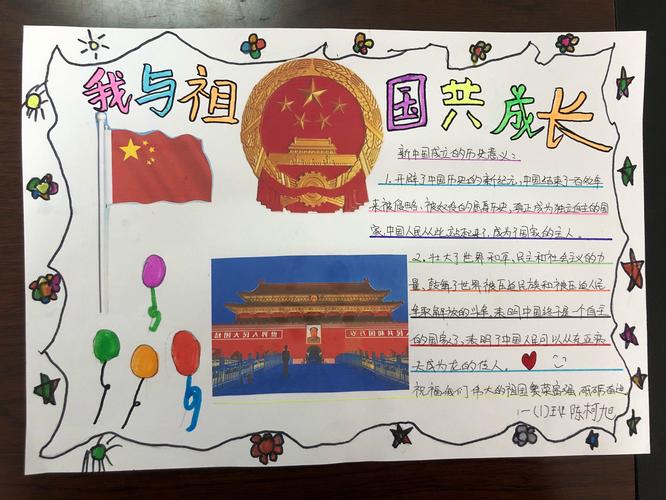 我与祖国共成长
新中国成立的历史意义：
1.开辟了中国历史的新纪元，中国结束了一百多年
来被侵略、被奴役的屈辱历史，真正成为独立自主的国
家，中国人民从此站起来了，成为了国家的主人。
2、壮大了世界和平、民主和社会主义的力
量，鼓舞了世界被压迫民族和被压迫人民
争取解放的斗争，表明中国终于是一个自主
的国家了，表明了中国人民可以从东亚病
夫成为龙的传人。
祝福我们伟大的祖国繁荣富强
一(1)班 陈柯旭
中华人民共和国万岁
世界人民大团结